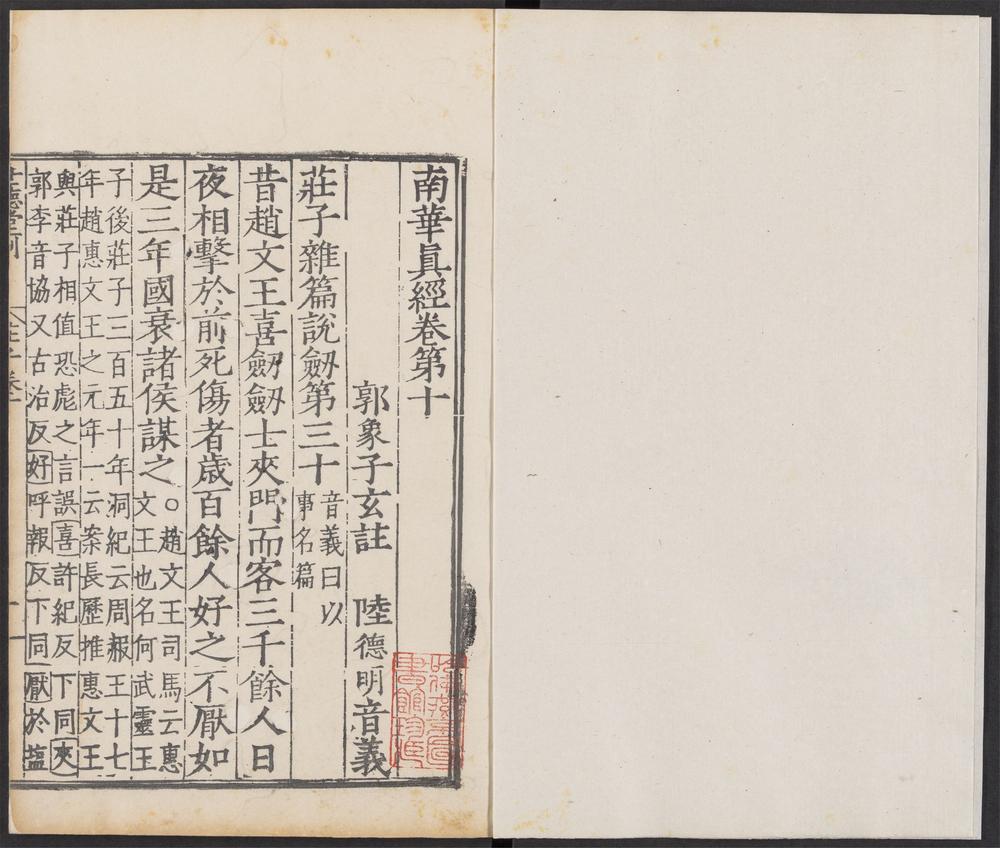 南華眞經卷第十
郭象子玄註 陸德明音義
莊子雜篇說劒第三十音義曰以
事名篇
昔趙文王喜劒劒士夾門而客三千餘人日
夜相擊於前死傷者歲百餘人好之不厭如
是三年國衰諸侯謀之○趙文王司馬云惠
文王也名何武靈王
子後莊子三百五十年洞紀云周赧王十七
年趙惠文王之元年一云案長歷推惠文王
與莊子相值恐彪之言誤喜許紀反下同夾
郭李音協又古洽反好呼報反下同厭於鹽